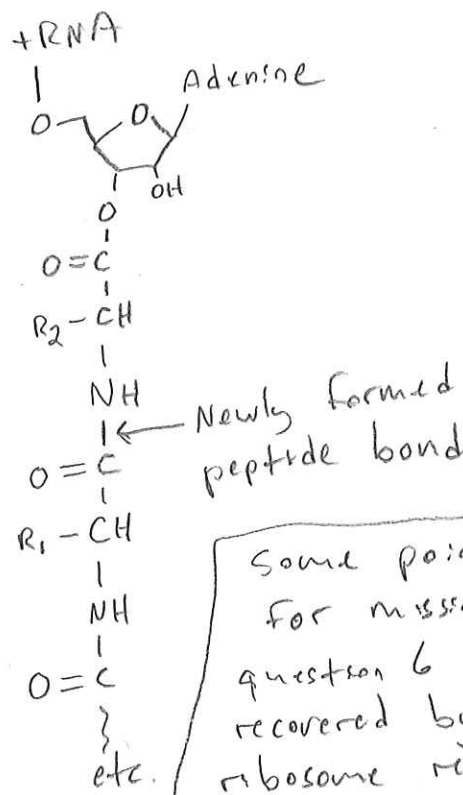 tRNA
Adenine
O
O
OH
O
O=C
R₂-CH
NH
Newly formed
peptide bond
O=C
R₁-CH
NH
O=C
etc.
some
for
question 6
recovered
ribosome